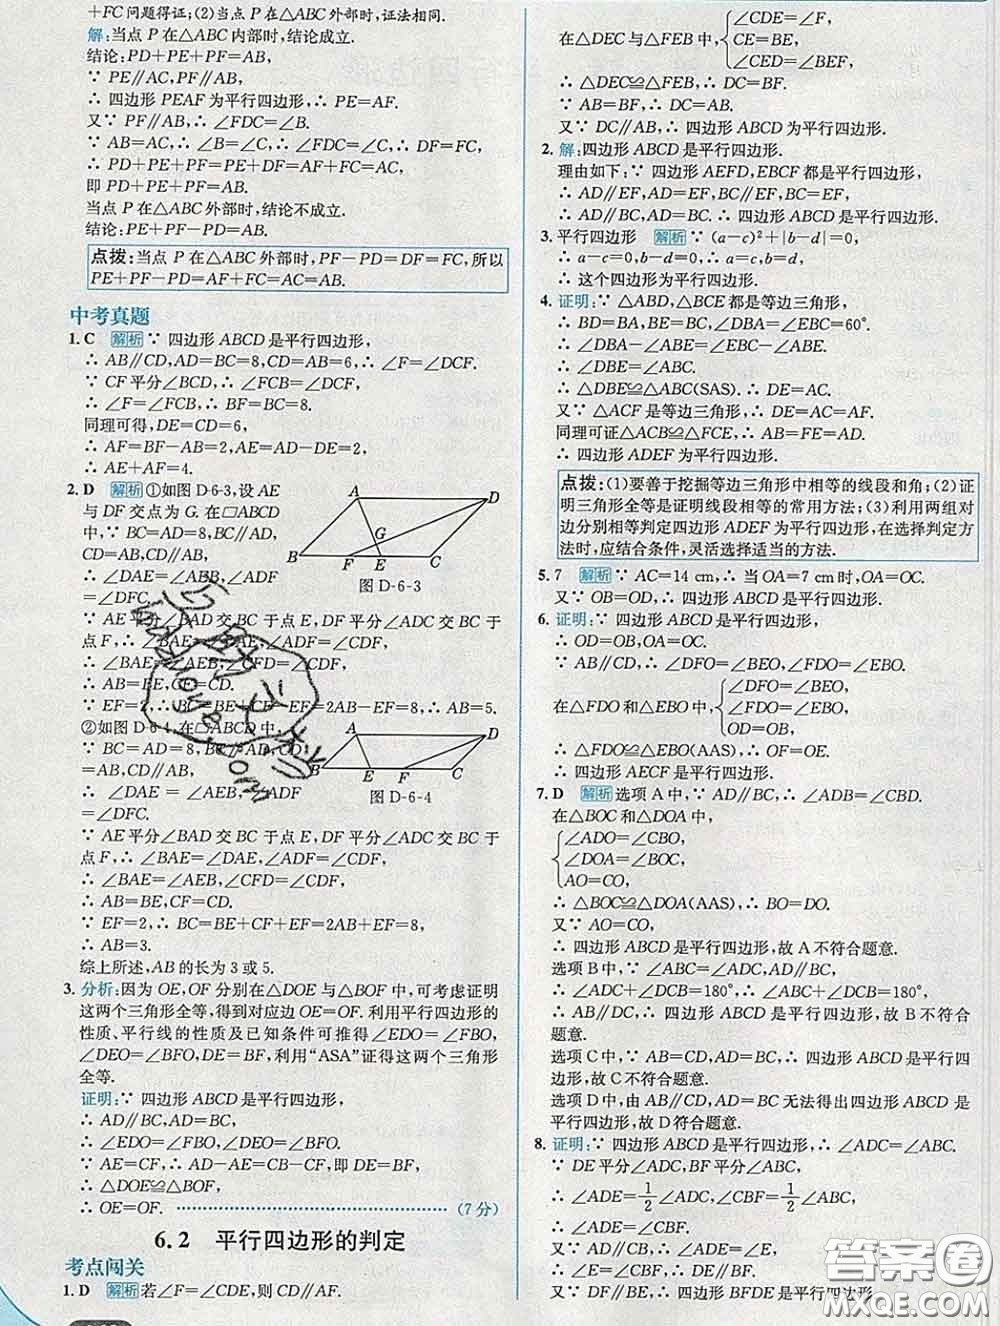 +FC问题得证;(2)当点 P 在△ABC 外部时,证法相同.
解:当点 P 在△ABC 内部时,结论成立.
结论:PD+PE+PF=AB.
∵ PE∥AC,PF∥AB,
∴ 四边形 PEAF 为平行四边形,∴ PE=AF.
又∵ PF∥AB,∴ ∠FDC=∠B.
∵ AB=AC,∴ ∠B=∠C,∴ ∠FDC=∠C,∴ DF=FC,
∴ PD+PE+PF=PE+DF=AF+FC=AC,
即 PD+PE+PF=AB.
当点 P 在△ABC外部时,结论不成立.
结论:PE+PF-PD=AB.
点拨:当点 P 在△ABC外部时,PF-PD=DF=FC,所以
PE+PF-PD=AF+FC=AC=AB.
中考真题
1. C 解析 ∵ 四边形 ABCD 是平行四边形,
∴ AB∥CD,AD=BC=8,CD=AB=6,∴ ∠F=∠DCF.
∵ CF 平分∠BCD,∴ ∠FCB=∠DCF,
∴ ∠F=∠FCB,∴ BF=BC=8.
同理可得,DE=CD=6,
∴ AF=BF-AB=2,AE=AD-DE=2,
∴ AE+AF=4.
2. D 解析 ①如图 D-6-3,设 AE
与 DF 交点为 G. 在▱ABCD
中,∵ BC=AD=8,BC∥AD,
CD=AB,CD∥AB,
∴ ∠DAE=∠AEB,∠ADF
=∠DFC.
A
D
G
B
F E
C
图 D-6-3
∵ AE 平分∠BAD 交 BC 于点 E,DF 平分∠ADC 交 BC 于
点 F,∴ ∠BAE=∠DAE,∠ADF=∠CDF,
∴ ∠BAE=∠AEB,∠DFC=∠CDF,
∴ AB=BE,CF=CD.
∵ EF=2,∴ BC=BE+CF-EF=2AB-EF=8,∴ AB=5.
②如图 D-6-4,在▱ABCD 中,
∵ BC=AD=8,BC∥AD,CD
=AB,CD∥AB,
∴ ∠DAE=∠AEB,∠ADF
=∠DFC.
A
D
B
E
F
C
图 D-6-4
∵ AE 平分∠BAD 交 BC 于点 E,DF 平分∠ADC 交 BC 于
点 F,∴ ∠BAE=∠DAE,∠ADF=∠CDF,
∴ ∠BAE=∠AEB,∠DFC=∠CDF,
∴ AB=BE,CF=CD.
∵ EF=2,∴ BC=BE+CF+EF=2AB+EF=8,
∴ AB=3.
综上所述,AB 的长为 3 或 5.
3. 分析:因为 OE,OF 分别在△DOE 与△BOF 中,可考虑证明
这两个三角形全等,得到对应边 OE=OF. 利用平行四边形的
性质、平行线的性质及已知条件可推得∠EDO=∠FBO,
∠DEO=∠BFO,DE=BF,利用“ASA”证得这两个三角形
全等.
证明:∵ 四边形 ABCD 是平行四边形,
∴ AD∥BC,AD=BC,
∴ ∠EDO=∠FBO,∠DEO=∠BFO.
∵ AE=CF,∴ AD-AE=CB-CF,即 DE=BF,
∴ △DOE≌△BOF,
∴ OE=OF. (7 分)
6.2 平行四边形的判定
考点闯关
1. D 解析 若∠F=∠CDE,则 CD∥AF.
在△DEC 与△FEB 中,{∠CDE=∠F,
CE=BE,
∠CED=∠FEB,
∴ △DEC≌△FEB,∴ DC=BF.
∵ AB=BF,∴ DC=AB.
又∵ DC∥AB,∴ 四边形 ABCD 为平行四边形.
2. 解:四边形 ABCD 是平行四边形.
理由如下:∵ 四边形 AEFD,EBCF 都是平行四边形,
∴ AD∥EF,AD=EF,BC∥EF,BC=EF,
∴ AD∥BC,AD=BC. ∴ 四边形 ABCD 是平行四边形.
3. 平行四边形 解析 ∵ (a-c)²+|b-d|=0,
∴ a-c=0,b-d=0,∴ a=c,b=d,
∴ 这个四边形为平行四边形.
4. 证明:∵ △ABD,△BCE 都是等边三角形,
∴ BD=BA,BE=BC,∠DBA=∠EBC=60°.
∴ ∠DBA-∠ABE=∠EBC-∠ABE.
∴ ∠DBE=∠ABC.
∴ △DBE≌△ABC(SAS). ∴ DE=AC.
又∵ △ACF 是等边三角形,∴ DE=AC=AF.
同理可证△ACB≌△FCE,∴ AB=FE=AD.
∴ 四边形 ADEF 为平行四边形.
点拨:(1)要善于挖掘等边三角形中相等的线段和角;(2)证
明三角形全等是证明线段相等的常用方法;(3)利用两组对
边分别相等判定四边形 ADEF 为平行四边形,在选择判定方
法时,应结合条件,灵活选择适当的方法.
5. 7 解析 ∵ AC=14 cm,∴ 当 OA=7 cm时,OA=OC.
又∵ OB=OD,∴ 四边形 ABCD 是平行四边形.
6. 证明:∵ 四边形 ABCD 是平行四边形,
∴ OD=OB,OA=OC.
∵ AB∥CD,∴ ∠DFO=∠BEO,∠FDO=∠EBO.
在△FDO 和△EBO 中,{∠DFO=∠BEO,
∠FDO=∠EBO,
OD=OB,
∴ △FDO≌△EBO(AAS),∴ OF=OE.
∴ 四边形 AECF 是平行四边形.
7. D 解析 选项 A 中,∵ AD∥BC,∴ ∠ADB=∠CBD.
在△BOC 和△DOA 中,
{∠ADO=∠CBO,
∠DOA=∠BOC,
AO=CO,
∴ △BOC≌△DOA(AAS),∴ BO=DO.
又∵ AO=CO,
∴ 四边形 ABCD 是平行四边形,故 A 不符合题意.
选项 B 中,∵ ∠ABC=∠ADC,AD∥BC,
∴ ∠ADC+∠DCB=180°,∴ ∠ABC+∠DCB=180°,
∴ AB∥CD. ∴ 四边形 ABCD 是平行四边形,故 B 不符合
题意.
选项 C 中,∵ AB=CD,AD=BC,∴ 四边形 ABCD 是平行四
边形,故 C 不符合题意.
选项 D 中,由 AB=CD,AD∥BC 无法得出四边形 ABCD 是
平行四边形,故 D 符合题意.
8. 证明:∵ 四边形 ABCD 是平行四边形,∴ ∠ADC=∠ABC.
∵ DE 平分∠ADC,BF 平分∠ABC,
∴ ∠ADE=1/2∠ADC,∠CBF=1/2∠ABC,
∴ ∠ADE=∠CBF.
又∵ AD∥BC,∴ ∠ADE=∠DEC,
∴ ∠DEC=∠CBF,
∴ DE∥BF.
又∵ DF∥BE,∴ 四边形 DFBE 是平行四边形,
答案圈
MXQE.COM